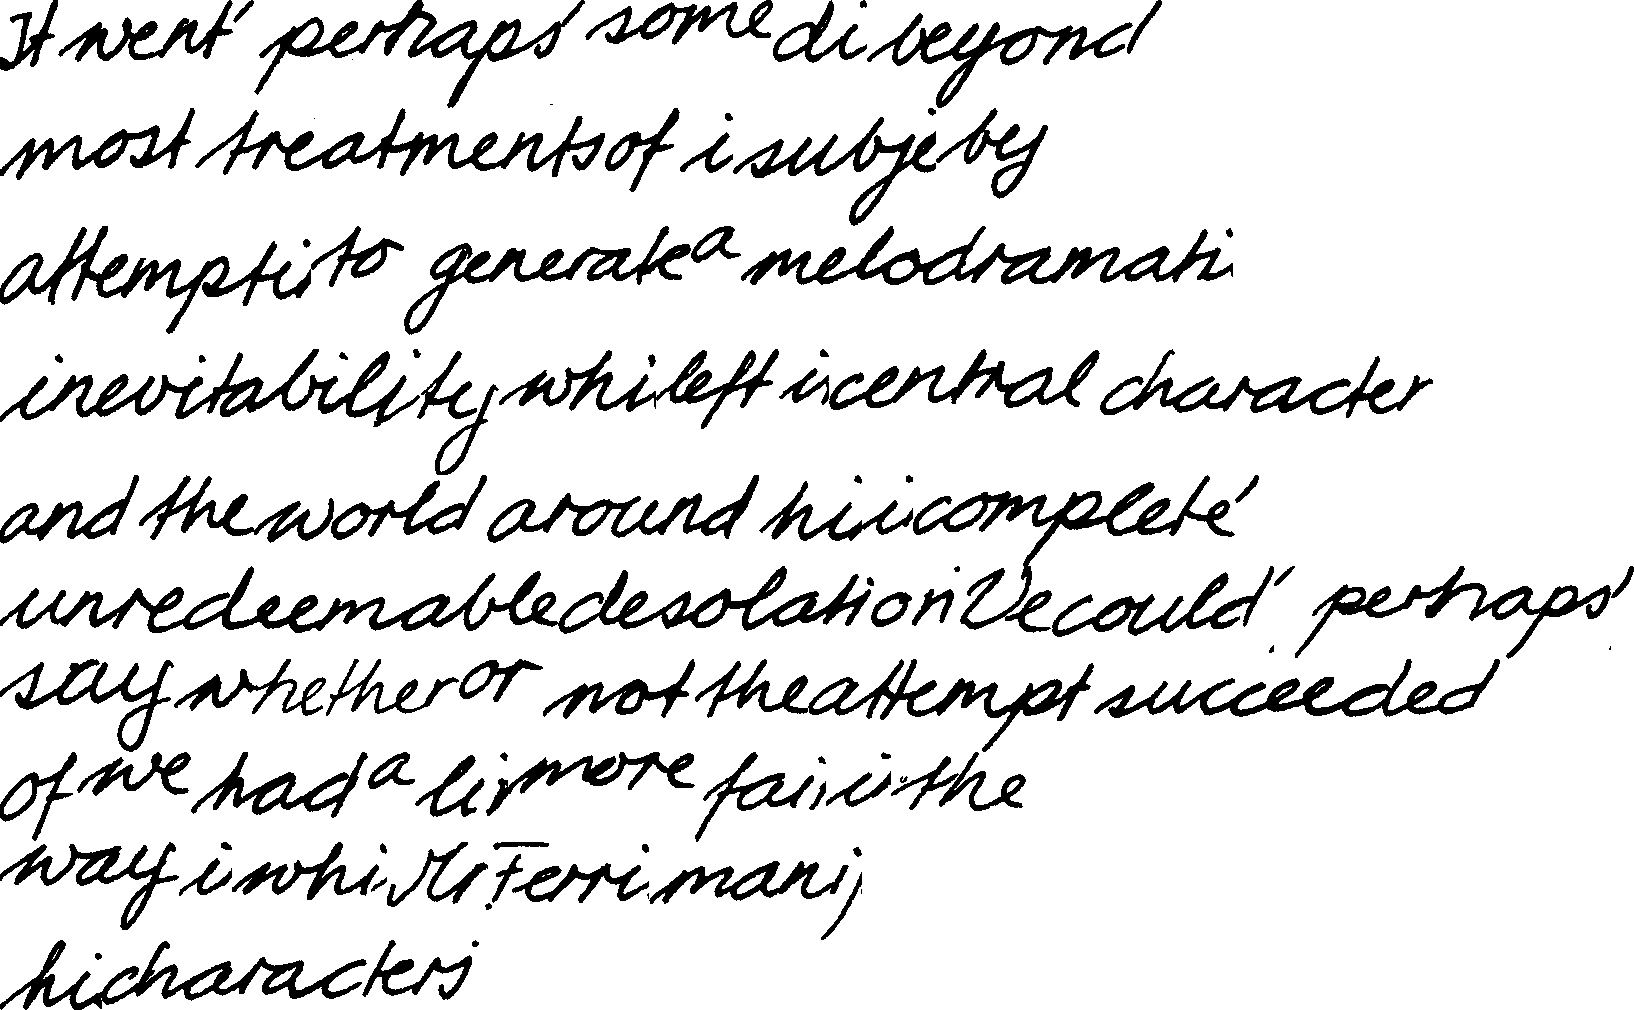 It went perhaps some di beyond
most treatments of i subje by
attempti to generate a melodramati
inevitability whi left i central character
and the world around hi i complete
unredeemable desolation We could perhaps
say whether or not the attempt succeeded
of we had a li more fai i the
way i whi Mr Ferri mani
hi characters